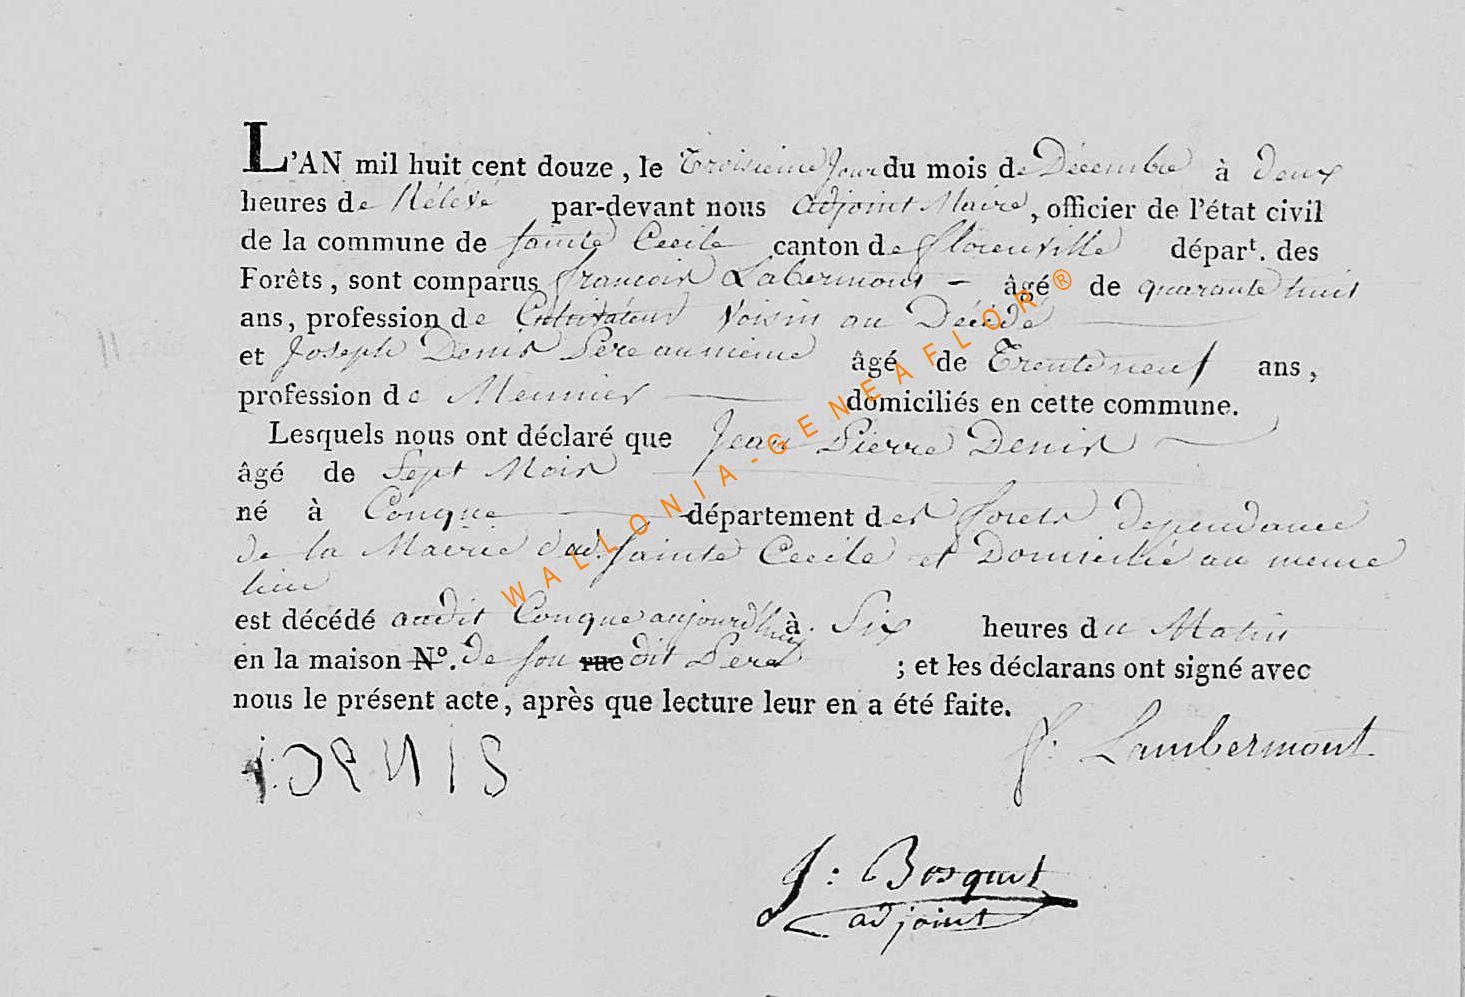 L'AN mil huit cent douze, le Troisieme Jour du mois de Décembre à deux
heures de Rélévé par-devant nous adjoint Maire, officier de l'état civil
de la commune de Sainte Cecile canton de florenville départ. des
Forêts, sont comparus francois Labermont - âgé de quarante huit
ans, profession de Cultivateur Voisin au Décédé
et Joseph Denis Pere au même âgé de Trente neuf ans,
profession de Meunier domiciliés en cette commune.
Lesquels nous ont déclaré que Jean Pierre Denis
âgé de Sept Mois
né à Conque département des forets dependance
de la Mairie dud. Sainte Cecile et Domicilié au meme
lieu
est décédé audit Conque aujourd'hui à Six heures du Matin
en la maison N°. de son rue dit Pere ; et les déclarans ont signé avec
nous le présent acte, après que lecture leur en a été faite.
f. Lambermont
i: DENIS
J: Bosquet
adjoint
WALLONIA-GENEAFLOR®